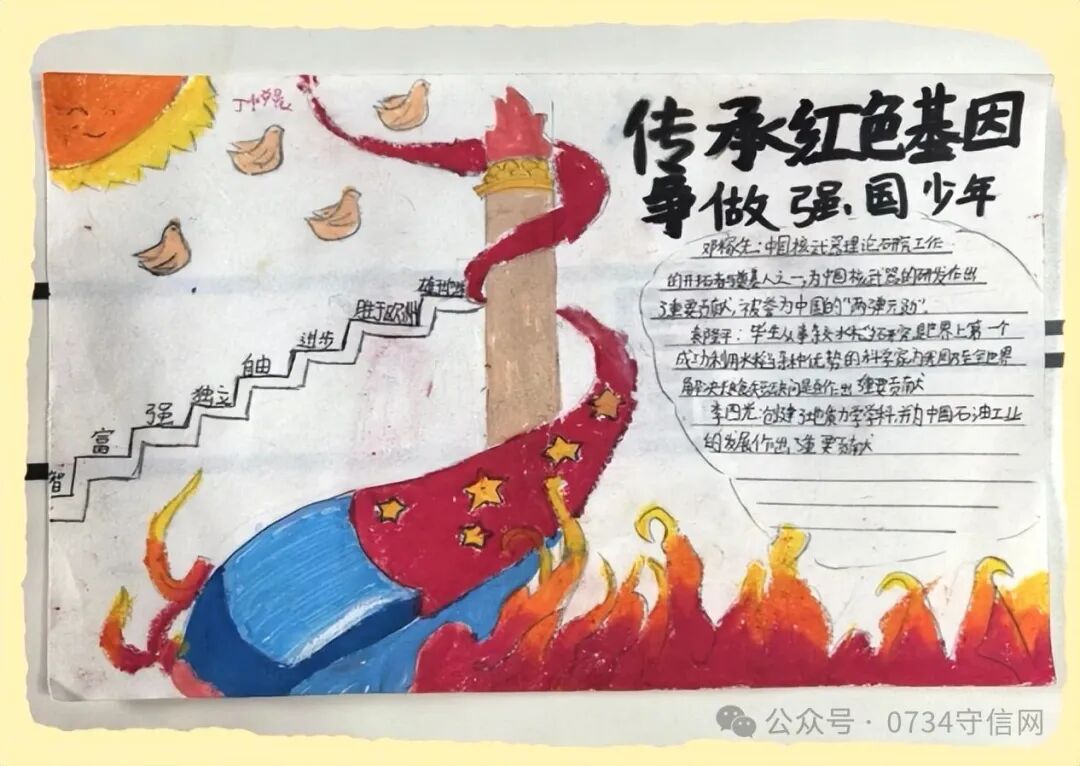 传承红色基因
争做强国少年
邓稼先:中国核武器理论研究工作
的开拓者与奠基人之一,为中国核武器的研发作出
了重要贡献,被誉为中国的“两弹元勋”。
袁隆平:毕生从事杂交水稻研究是世界上第一个
成功利用水稻杂种优势的科学家为我国乃至全世界
解决粮食短缺问题作出重要贡献
李四光:创建了地质力学学科,并为中国石油工业
的发展作出了重要贡献
胜于欧洲
进步
自由
独立
强
富
智
公众号·0734守信网